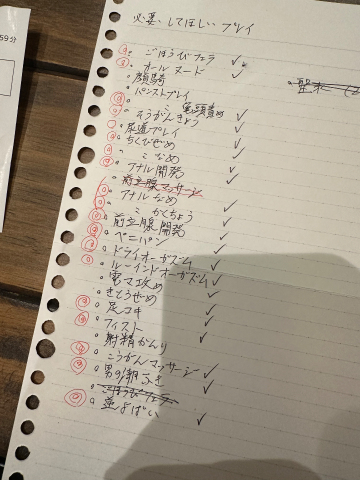 59分
必要、してほしい プレイ
ごほうびフェラ
オール ヌード
顔騎
パンストプレイ
〃 亀頭責め
そうがんきょう
尿道プレイ
ちくびぜめ
〃 こなめ
アナル開発
前立腺マッサージ
アナルなめ
〃 かくちょう
前立腺開発
ペニバン
ドライオーガズム
ルーインドオーガズム
電マ攻め
きとうぜめ
足コキ
フィスト
射精かんり
こうがんマッサージ
男の潮ふき
ごほうびフェラ
並よばい